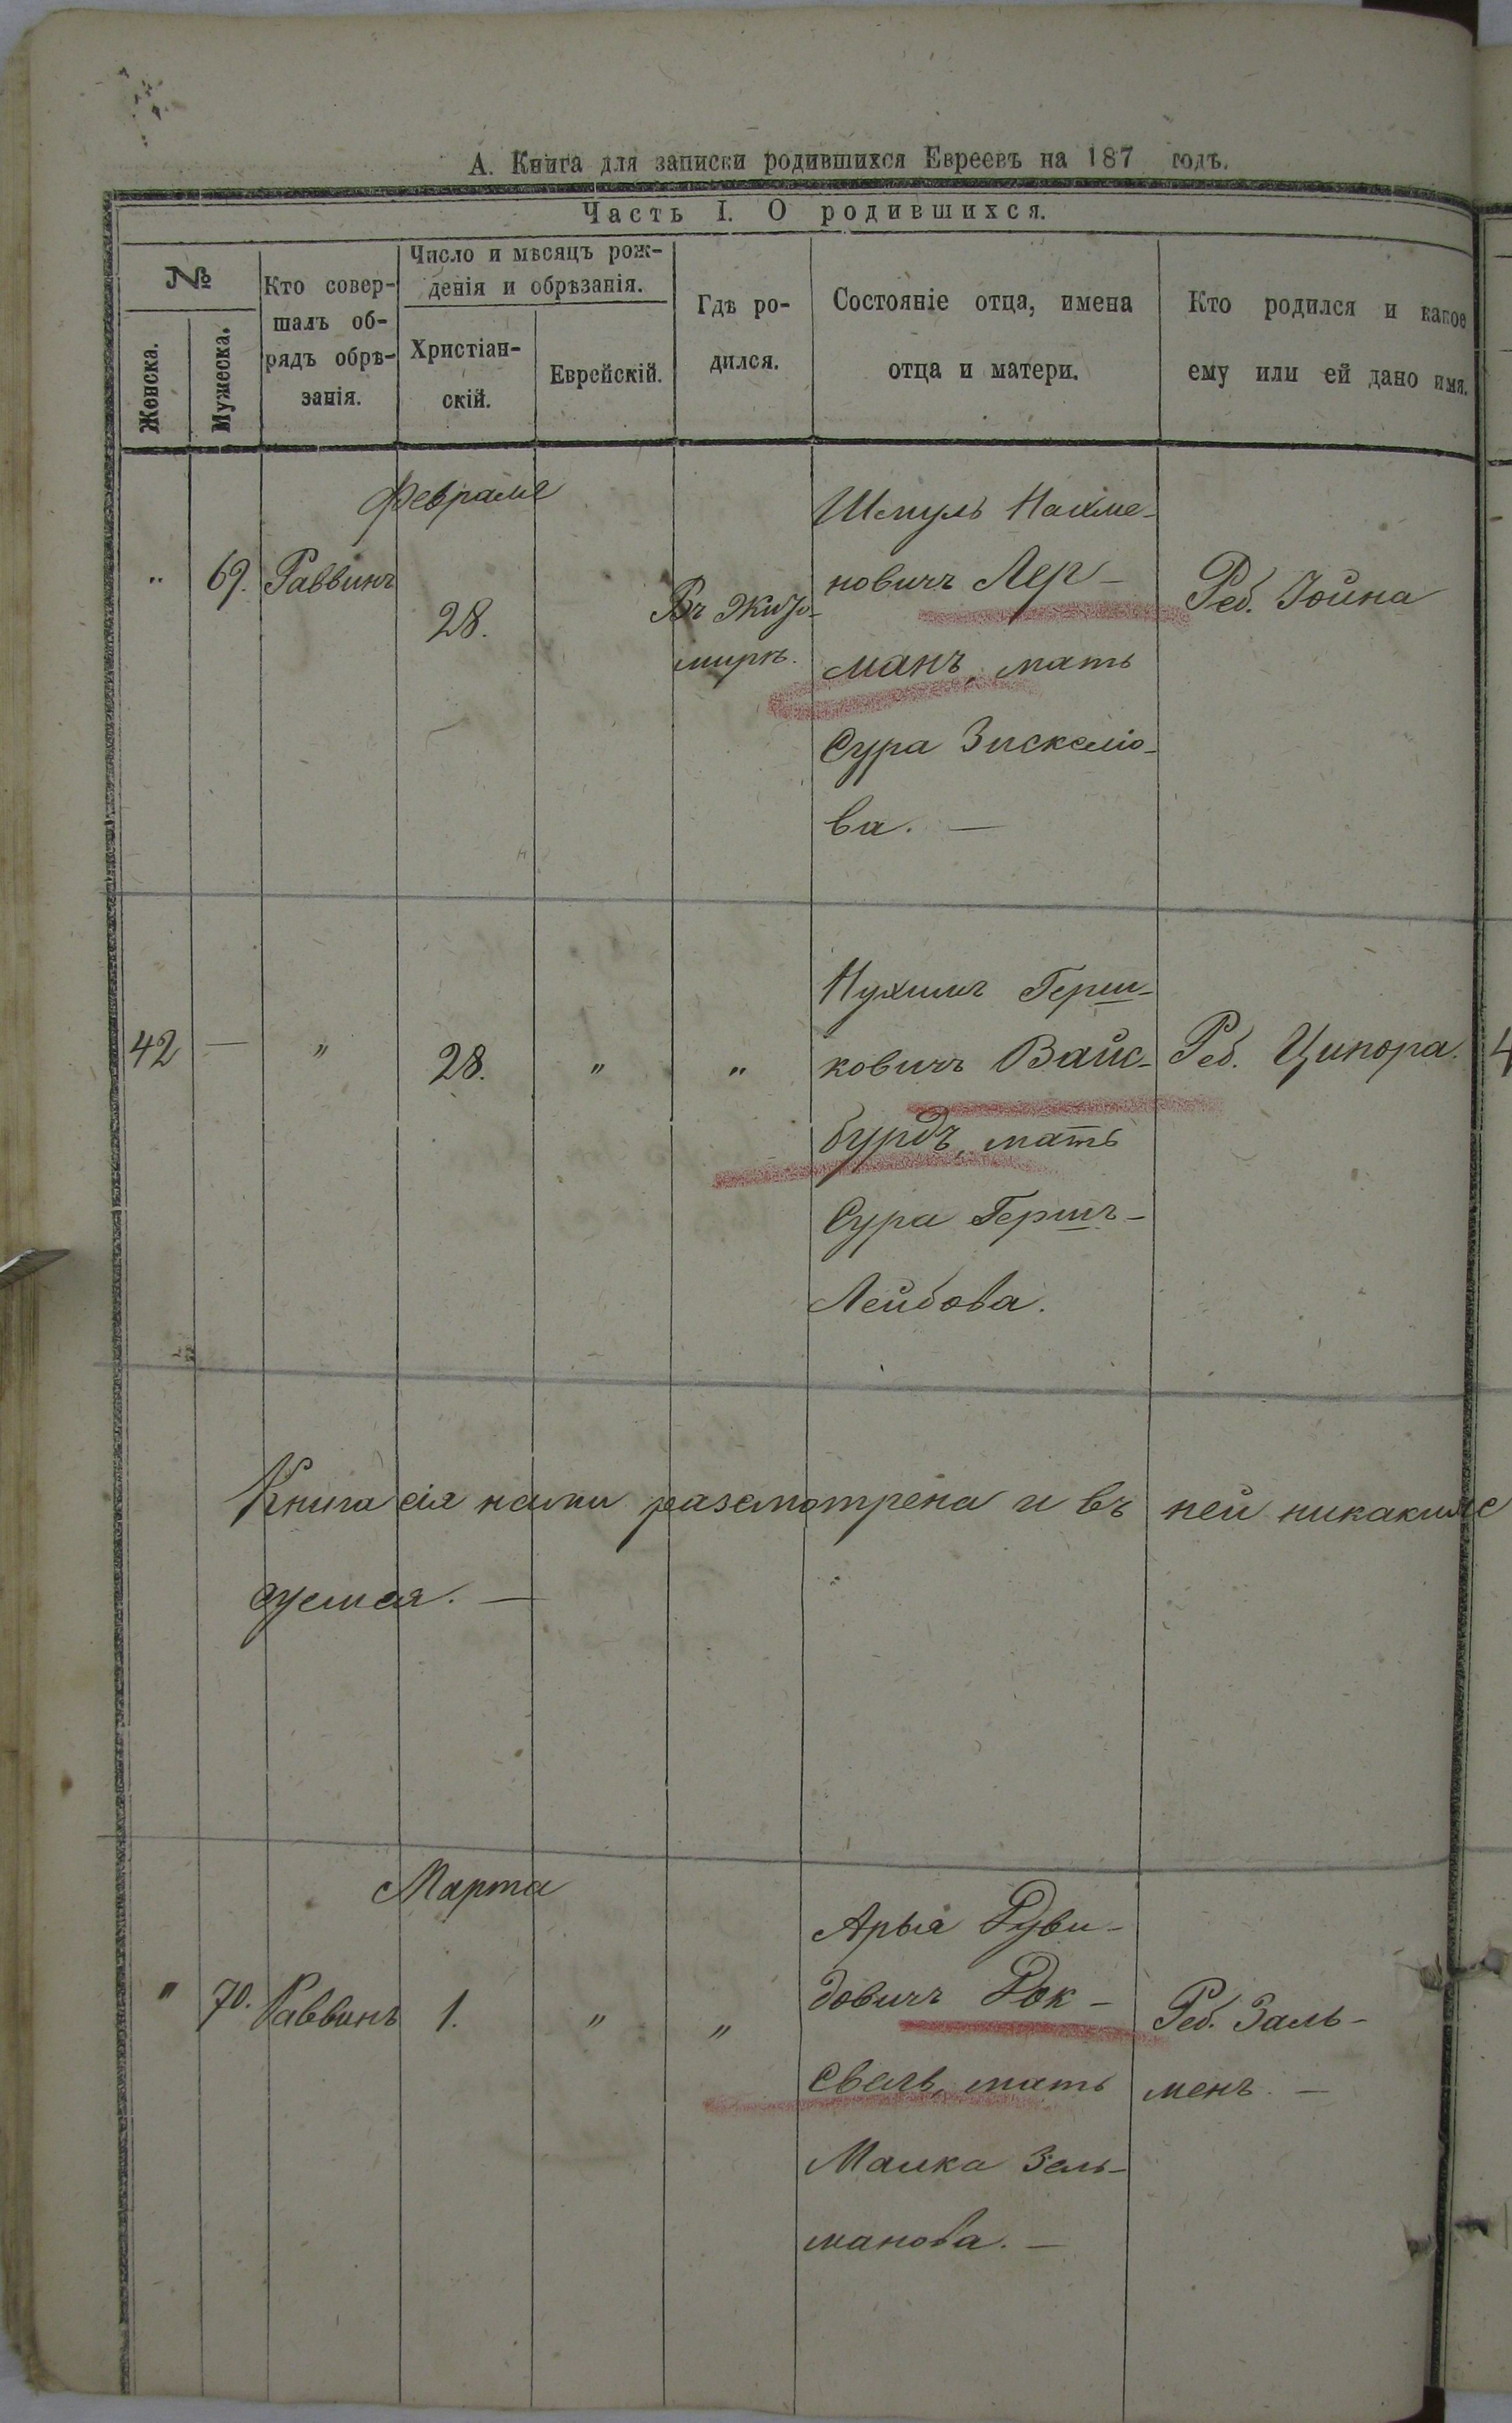 А. Книга для записки родившихся Евреевъ на 187 годъ.
Часть I. О родившихся.
№
Женска.
Мужеска.
Кто совер-
шалъ об-
рядъ обрѣ-
занія.
Число и мѣсяцъ рож-
денія и обрѣзанія.
Христіан-
скій.
Еврейскій.
Гдѣ ро-
дился.
Состояніе отца, имена
отца и матери.
Кто родился и какое
ему или ей дано имя.
Февраля
" 69. Раввинъ
28.
Въ Жито-
мирѣ.
Шмуль Нахме-
новичъ Лер-
манъ, мать
Сура Зискелio-
ва. —
Реб. Іойна
42 — " 28. " "
Нухимъ Герш-
ковичъ Вайс-
бурдъ, мать
Сура Гершъ-
Лейбова.
Реб. Ципора.
Книга сія нами разсмотрена и въ ней никаких
Марта
" 70. Раввинъ 1. " "
Арья Руви-
довичъ Рок-
мать
Малка Зель-
манова. —
Реб. Заль-
менъ. —